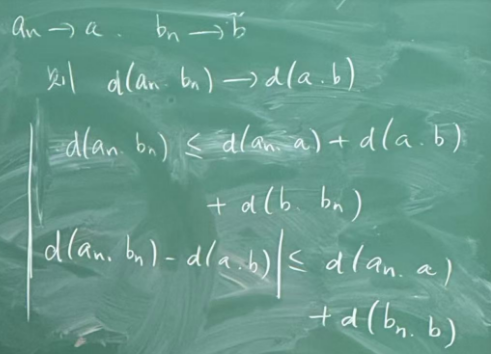 an → a. bn → b
则 d(an. bn) → d(a.b)
d(an. bn) ≤ d(an. a) + d(a.b)
+ d(b. bn)
|d(an. bn) - d(a.b)| ≤ d(an. a)
+ d(bn. b)